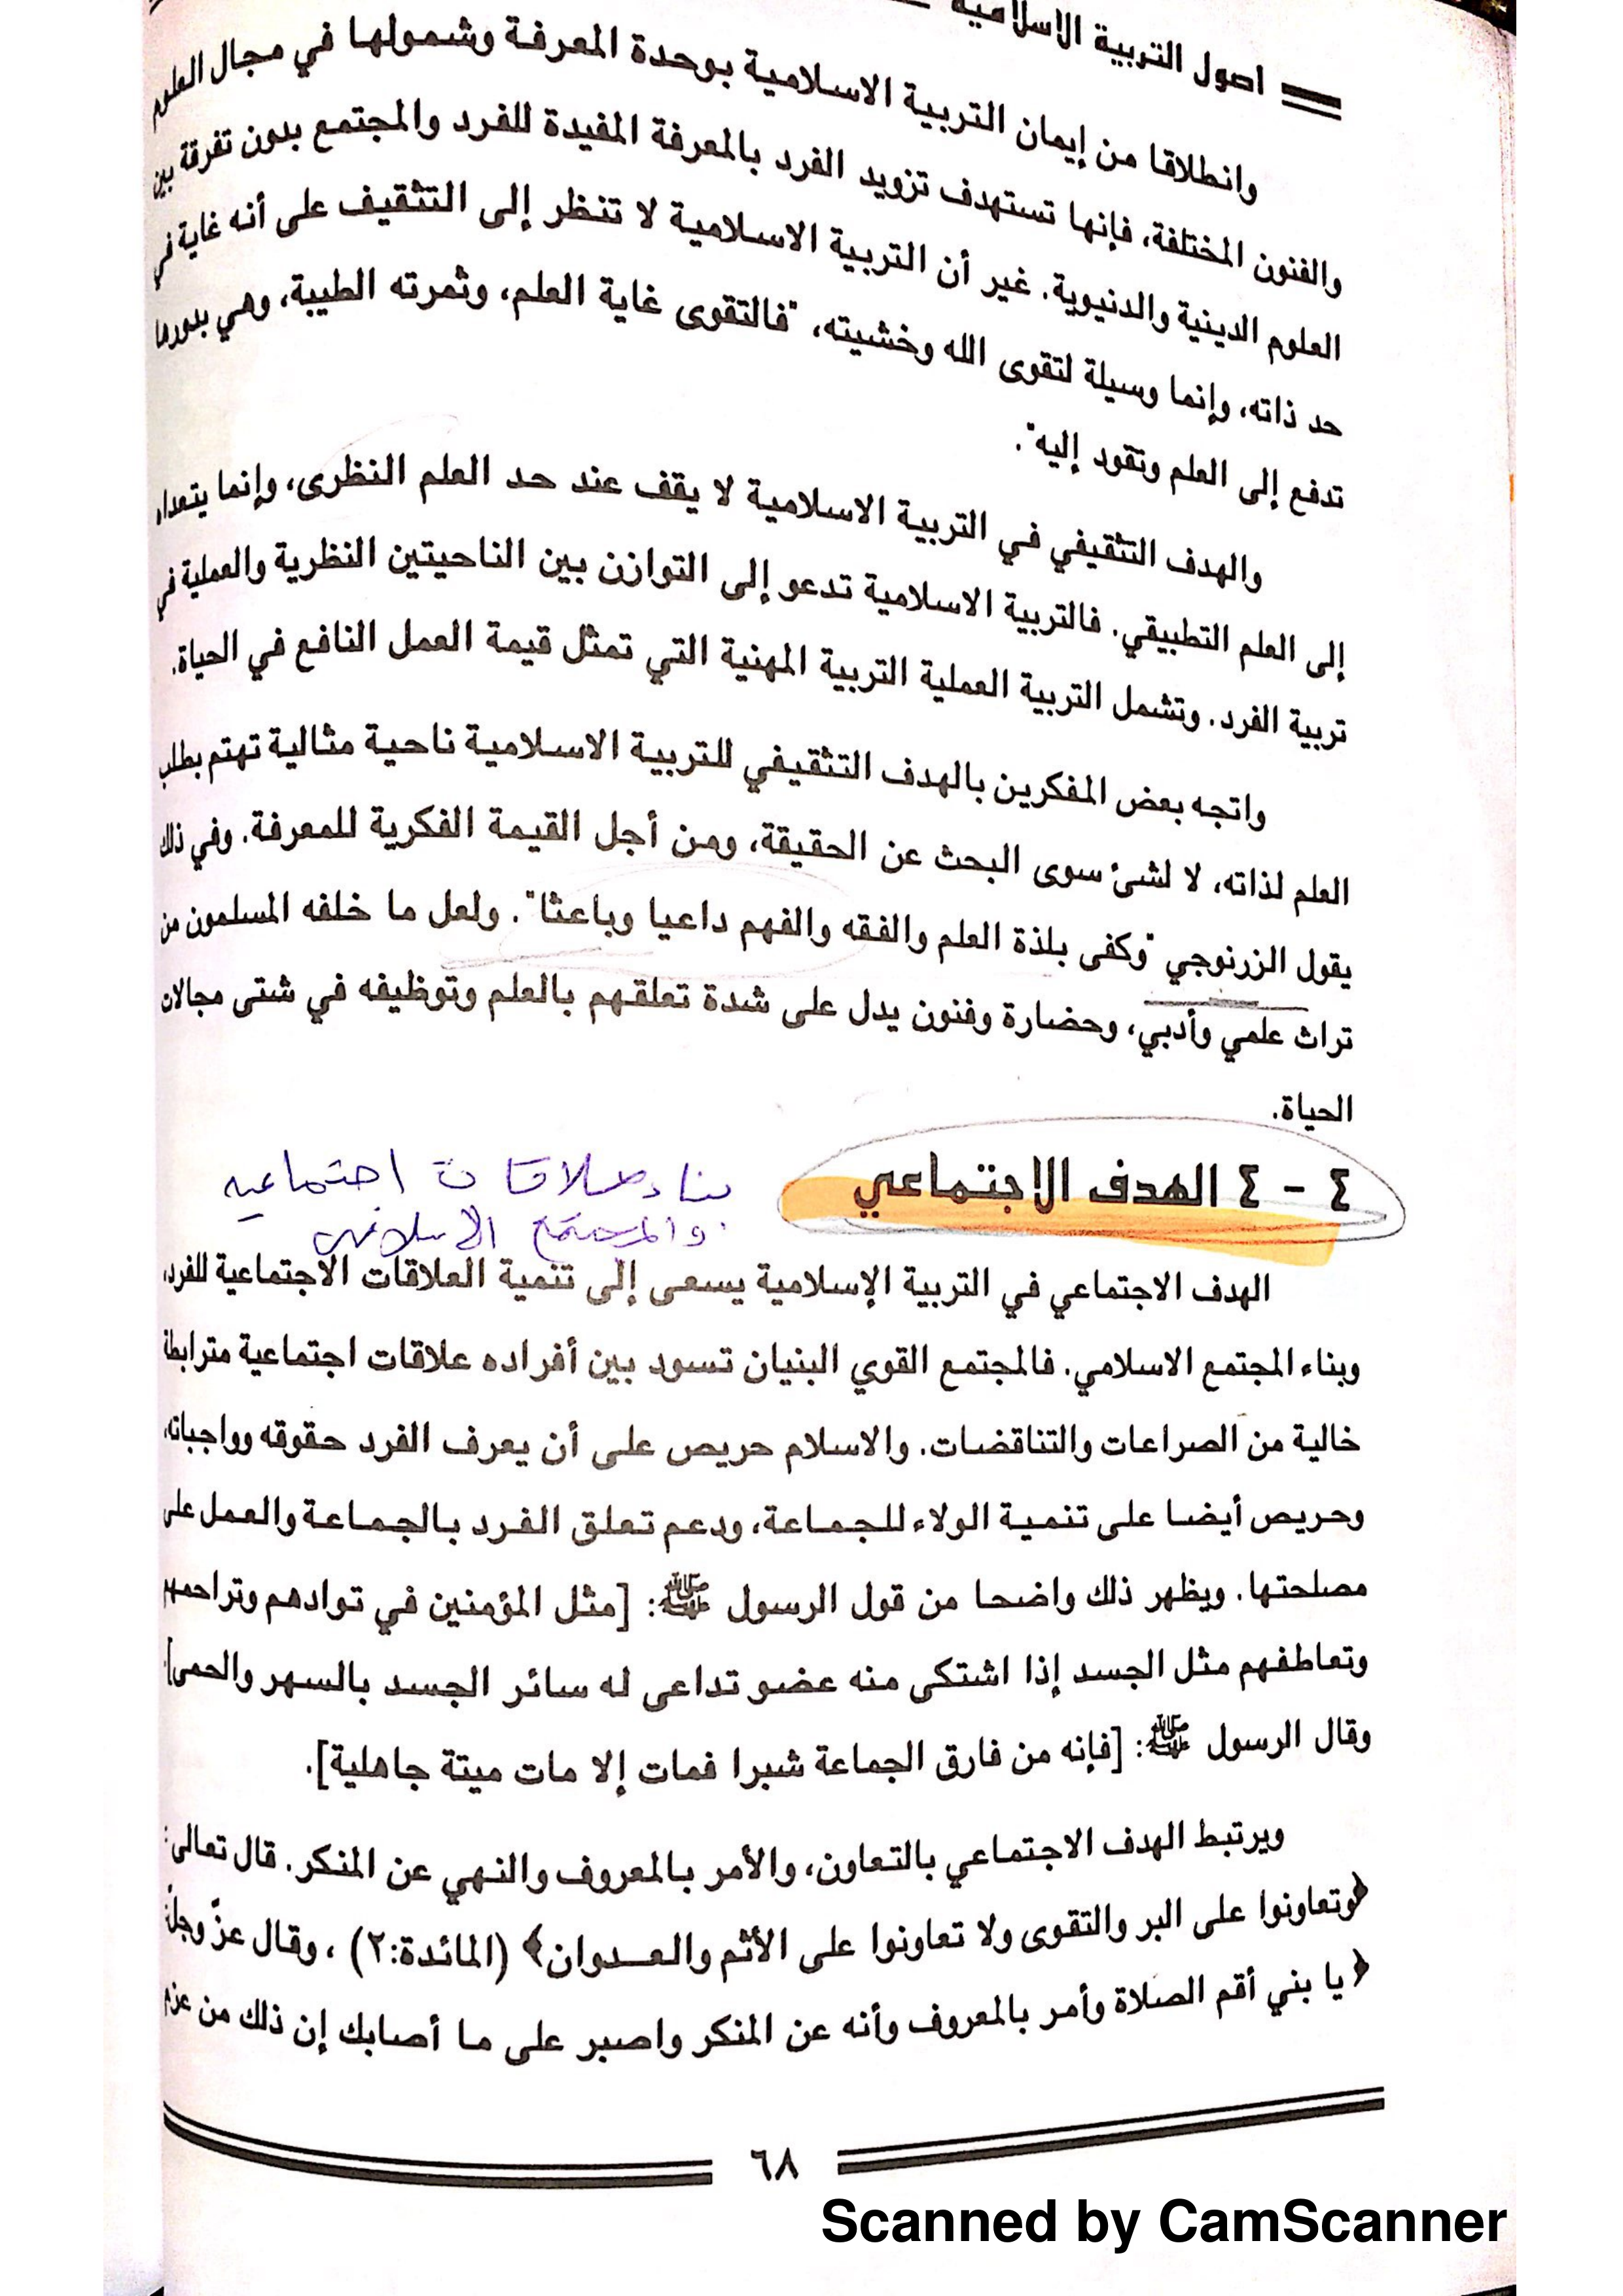 اصول التربية الاسلامية
وانطلاقا من إيمان التربية الاسلامية بوحدة المعرفة وشمولها في مجال العلوم
والفنون المختلفة، فإنها تستهدف تزويد الفرد بالمعرفة المفيدة للفرد والمجتمع بدون تفرقة بين
العلوم الدينية والدنيوية. غير أن التربية الاسلامية لا تنظر إلى التثقيف على أنه غاية في
حد ذاته، وإنما وسيلة لتقوى الله وخشيته، "فالتقوى غاية العلم، وثمرته الطيبة، وهي بدورها
تدفع إلى العلم وتقود إليه".
والهدف التثقيفي في التربية الاسلامية لا يقف عند حد العلم النظرى، وإنما يتعداه
إلى العلم التطبيقي. فالتربية الاسلامية تدعو إلى التوازن بين الناحيتين النظرية والعملية في
تربية الفرد. وتشمل التربية العملية التربية المهنية التي تمثل قيمة العمل النافع في الحياة.
واتجه بعض المفكرين بالهدف التثقيفي للتربية الاسلامية ناحية مثالية تهتم بطلب
العلم لذاته، لا لشئ سوى البحث عن الحقيقة، ومن أجل القيمة الفكرية للمعرفة. وفي ذلك
يقول الزرنوجي "وكفى بلذة العلم والفقه والفهم داعيا وباعثا". ولعل ما خلفه المسلمون من
تراث علمي وأدبي، وحضارة وفنون يدل على شدة تعلقهم بالعلم وتوظيفه في شتى مجالات
الحياة.
٤ - ٤ الهدف الاجتماعي
بناء علاقات اجتماعيه
والمجتمع الاسلامي
الهدف الاجتماعي في التربية الإسلامية يسعى إلى تنمية العلاقات الاجتماعية للفرد،
وبناء المجتمع الاسلامي. فالمجتمع القوي البنيان تسود بين أفراده علاقات اجتماعية مترابطة
خالية من الصراعات والتناقضات. والاسلام حريص على أن يعرف الفرد حقوقه وواجباته،
وحريص أيضا على تنمية الولاء للجماعة، ودعم تعلق الفرد بالجماعة والعمل على
مصلحتها. ويظهر ذلك واضحا من قول الرسول ﷺ: [مثل المؤمنين في توادهم وتراحمهم
وتعاطفهم مثل الجسد إذا اشتكى منه عضو تداعى له سائر الجسد بالسهر والحمى]
وقال الرسول ﷺ: [فإنه من فارق الجماعة شبرا فمات إلا مات ميتة جاهلية].
ويرتبط الهدف الاجتماعي بالتعاون، والأمر بالمعروف والنهي عن المنكر. قال تعالى:
﴿وتعاونوا على البر والتقوى ولا تعاونوا على الأثم والعدوان﴾ (المائدة:٢) ، وقال عزّ وجلّ
﴿يا بني أقم الصلاة وأمر بالمعروف وأنه عن المنكر واصبر على ما أصابك إن ذلك من عزم
٦٨
Scanned by CamScanner